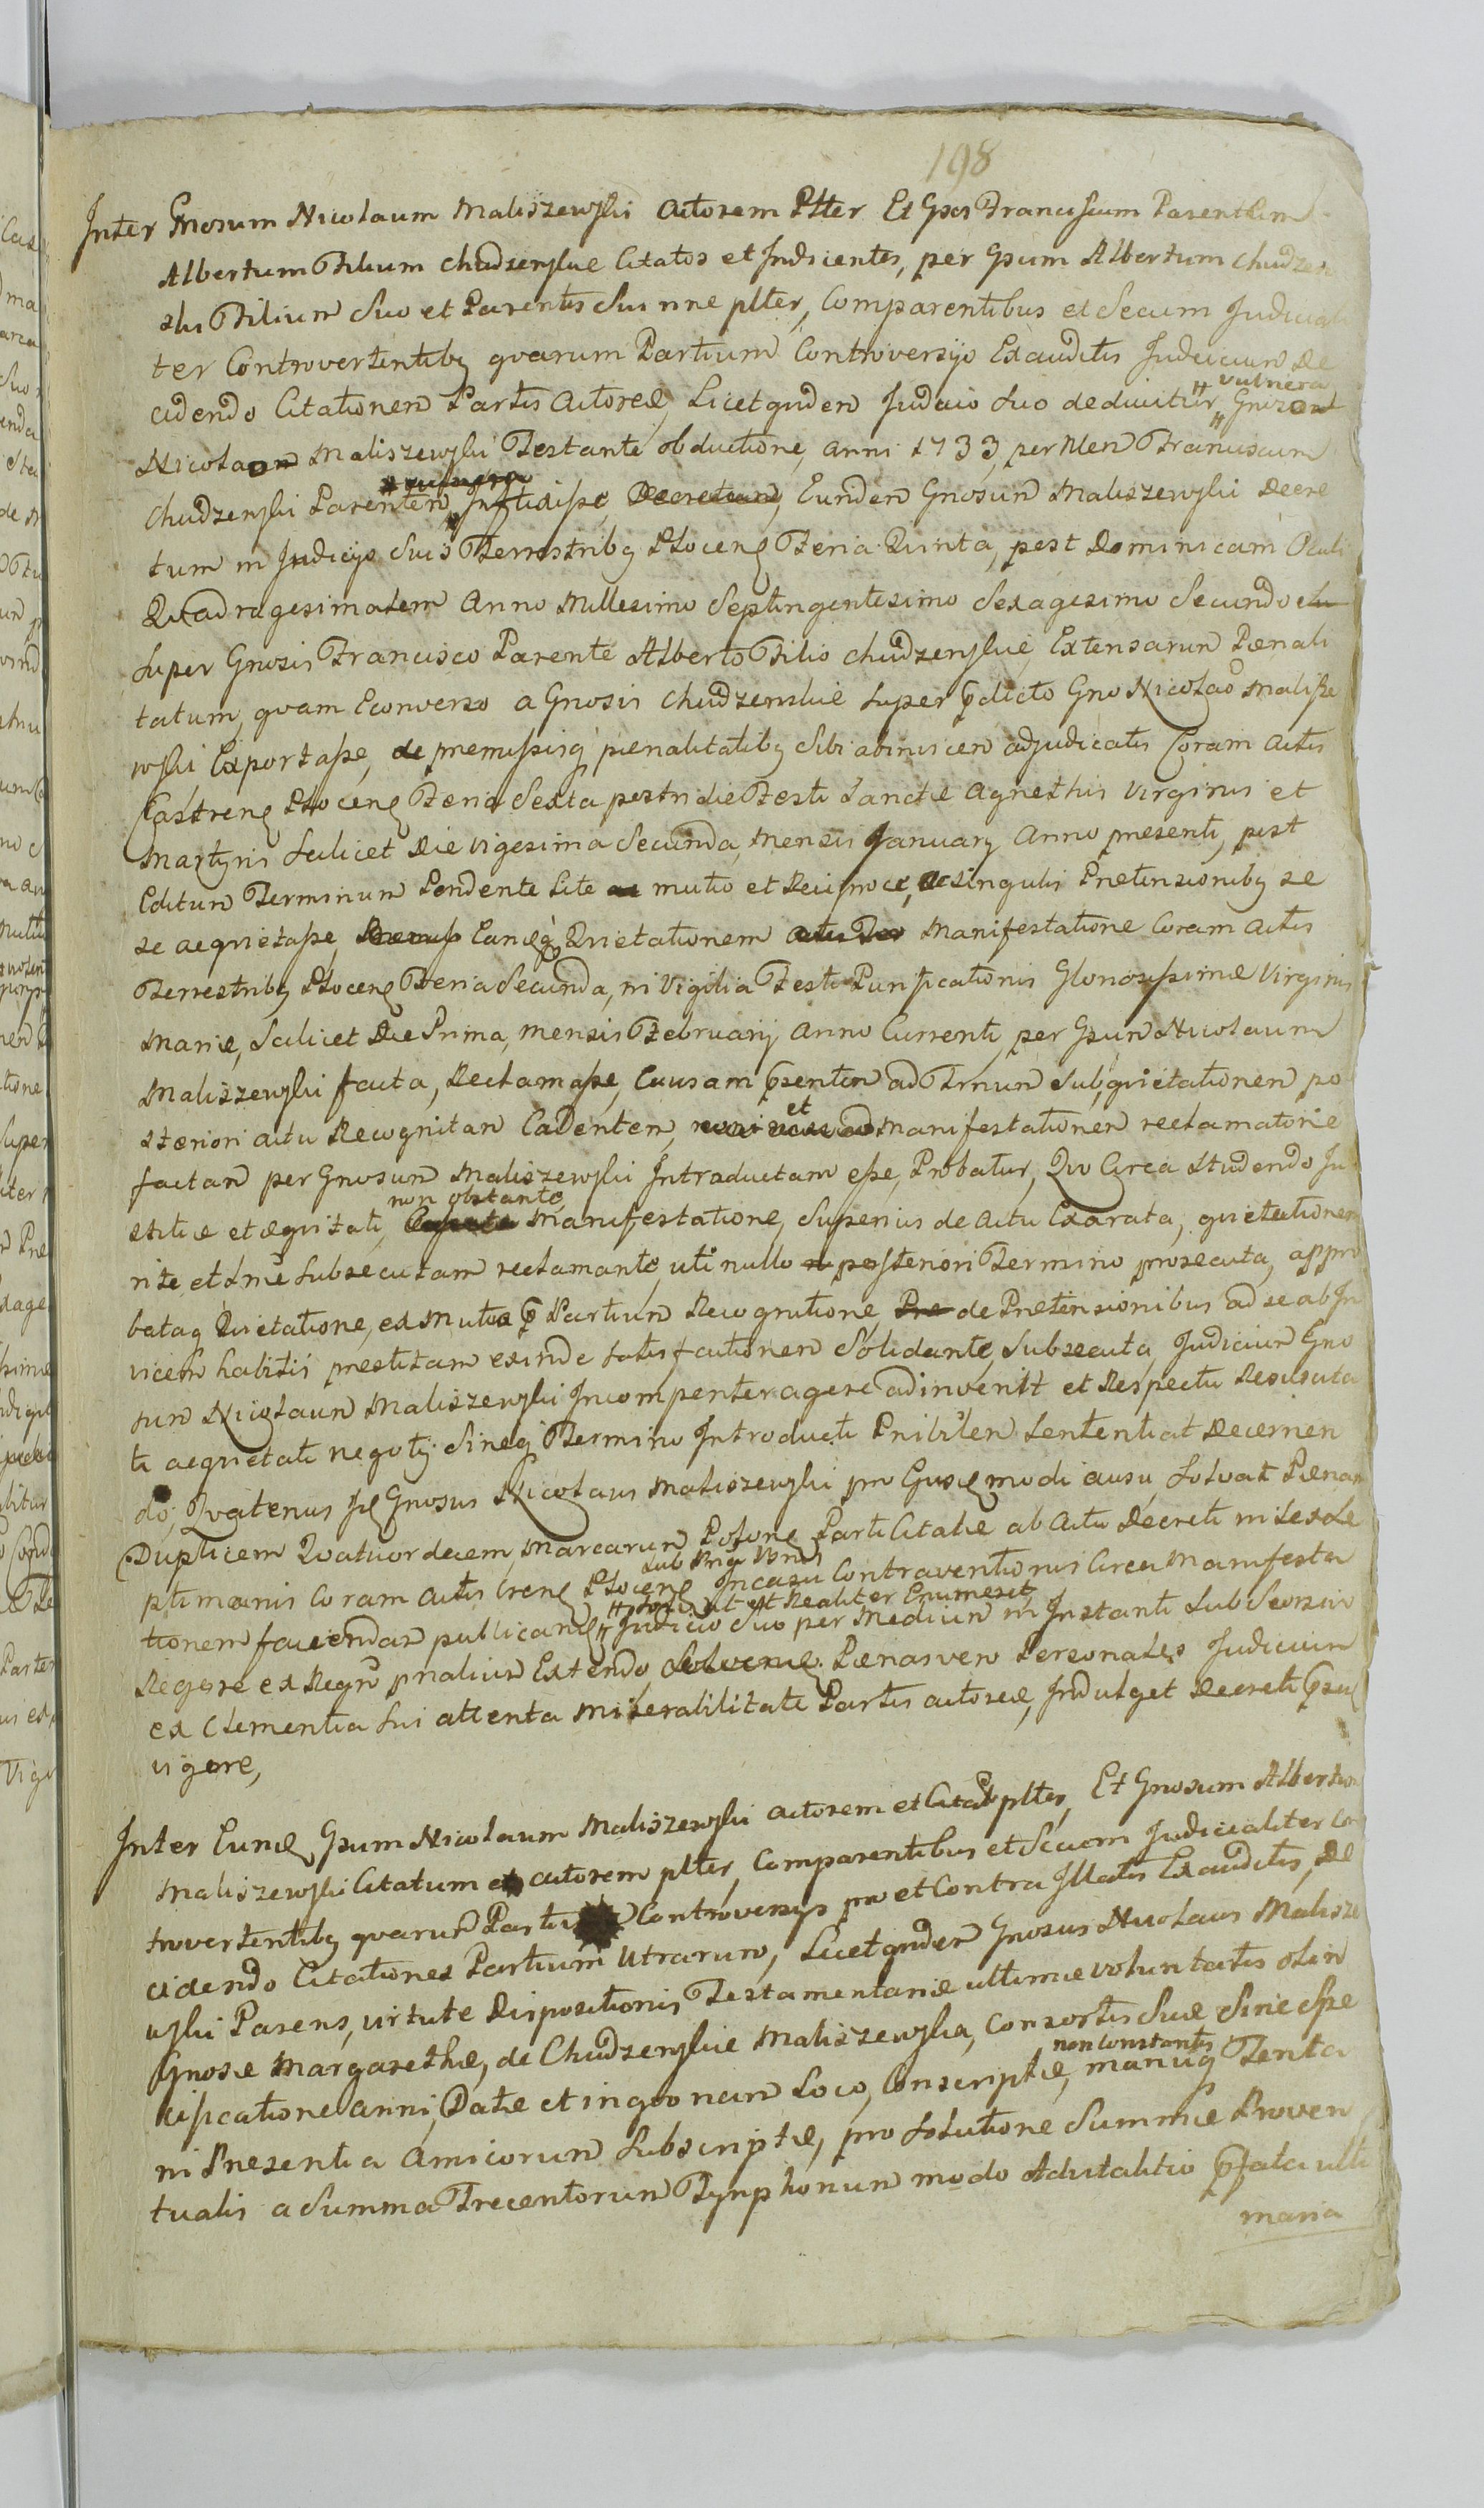 198
Inter Gnosum Nicolaum Maliszewski Actorem Plter Et Gsos Franciscum Parentem
Albertum Filium Chudzenskie Citatos et Indicentes, per Gsum Albertum Chudzen
ski Filium Suo et Parentis Sui nne plter, Comparentibus et Secum Judiciali
ter Controvertentibq quarum Partium Controversijs Exauditis Judicium De
cidendo Citationem Partis Actoreæ, Licet quidem Judicio Suo deducitur vulnera Gnoso
Nicolao Maliszewski Testante obductione, anni 1733, per Franciscum
Chudzenski Parentem Inflixisse, Decretum, Eundem Gnosum Maliszewski Decre
tum in Judicijs Suis Terrestribq Plocens Feria Quinta, post Dominicam Oculi
Quadragesimalem Anno Millesimo Septingentesimo Sexagesimo Secundo
Super Gnosis Francisco Parente Alberto Filio Chudzenskie, Extensarum Pænali
tatum, quam Econverso a Gnosis Chudzenskie Super pdicto Gno Nicolao Malisze
wski Exportasse, de premissisq penalitatibq Sibi abinvicem adjudicatis Coram Actis
Castrens Plocens Feria Sexta postridie Festi Sanctæ Agnethis Virginis et
Martyris Scilicet Die Vigesima Secunda, Mensis Januarij Anno presenti, post
Editum Terminum Pendente Lite mutio et Reciproce, de singulis Prætensionibq se
se acquietasse, Eamqe Quietationem Manifestatione Coram Actis
Terrestribq Plocens Feria Secunda, in Vigilia Festi Purificationis Gloriosissimæ Virginis
Mariæ, Scilicet Die Prima, Mensis Februarij Anno Currenti, per Gsum Nicolaum
Maliszewski facta, Reclamasse, Causam psentem ad Trnum Sub quietationem po
steriori actu Recognitam Cadentem, et manifestationem reclamatoriæ
factam per Gnosum Maliszewski Introductam esse, Probatur, Quo Circa Studendo Ju
stitiæ et æquitati, non obstante Manifestatione, Superius de Actu Exarata, quietationem
rite et Subsecutam reclamante, uti nullo posteriori Termino prosecuta, appro
bataq Quietatione, ex Mutua Partium Recognitione, de Prætensionibus ad se ab In
vicem habitis prestitam exinde Satisfactionem Solidante, Subsecuta, Judicium Gno
sum Nicolaum Maliszewski Incompenter agere adinvenit et Respectu
ti acquietati negotij Sineq Termino Introducti Sententiat Decernen
do, Quatenus Gnosus Nicolaus Maliszewski pro ausu, Solvat Pænam
Duplicem Quatuordecem Marcarum Polons Parti Citatæ ab Actu Decreti in Sex Se
ptimanis Coram Actis Plocens Incasu Contraventionis Circa Manifesta
tionem faciendam publicand Solvat et Realiter Enumeret Judicio Suo per Medium in Instanti Sub
Extendo Pænas vero Personales Judicium
ex Clementia Sui attenta Miserabilitate Partis actoreæ, Indulget Decreti
vigore,
Inter Eund Gsum Nicolaum Maliszewski actorem et Citat plter, Et Gnosum Albertum
Maliszewski Citatum et actorem plter, Comparentibus et Secum Judicialiter Con
trovertentibq quarum Partium Controversijs pro et Contra Illatis Exauditis, De
cidendo Citationes Partium Utrarum, Licet quidem Gnosus Nicolaus Malisze
wski Parens, virtute Dispositionis Testamentariæ ultimæ voluntatis olim
Gnosæ Margarethæ, de Chudzenskie Maliszewska, Consortis Suæ Sine Spe
cificatione anni, Datæ et in quonam Loco, Conscriptæ, non Constantis manuq Tenta
in Presentia Amicorum Subscriptæ, pro Solutione Summæ Proven
tualis a Summa Trecentorum Tynphonum modo Advitalitio pfata ulti
maria